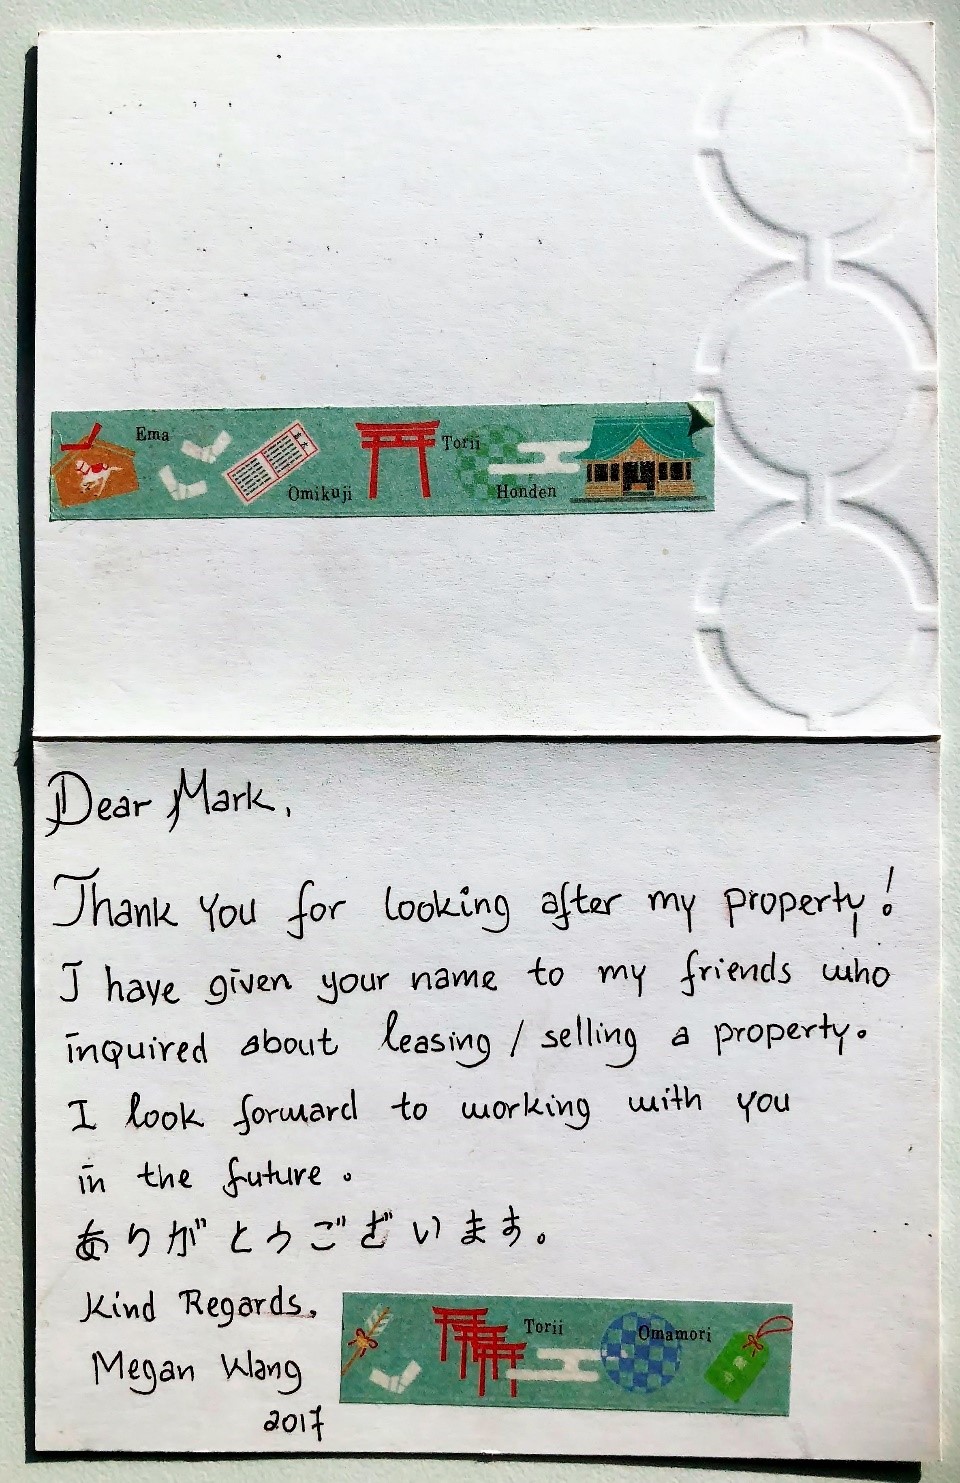 Ema
Omikuji
Torii
Honden
Dear Mark,
Thank You for looking after my property!
I have given your name to my friends who
inquired about leasing / selling a property.
I look forward to working with you
in the future.
ありがとうございます。
Kind Regards,
Megan Wang
2017
Torii
Omamori